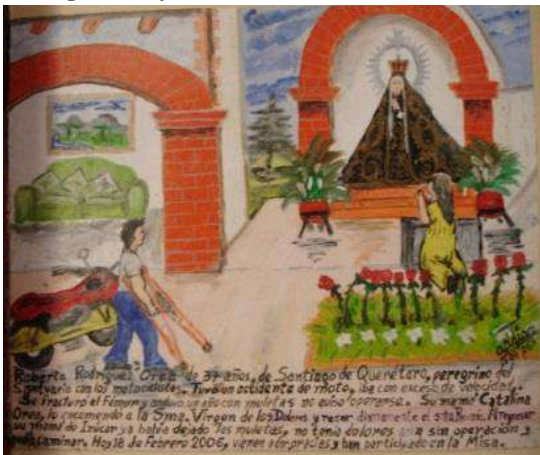 Roberto Rodriguez Orea de 37 años, de Santiago de Querétaro, peregrino del
Santuario con los motociclistas. Tuvo un accidente en moto, iba con exceso de velocidad.
Se fracturó el Fémur y anduvo un año con muletas no quiso operarse. Su mamá Catalina
Orea, lo encomendo a la Sma. Virgen de los Dolores y rezar diariamente el sto. Al regresar
su mamá de ya había dejado las muletas, no tenía dolores sin operación y
caminar. Hoy 18 de Febrero 2006, vienen a dar gracias y han participado en la Misa.